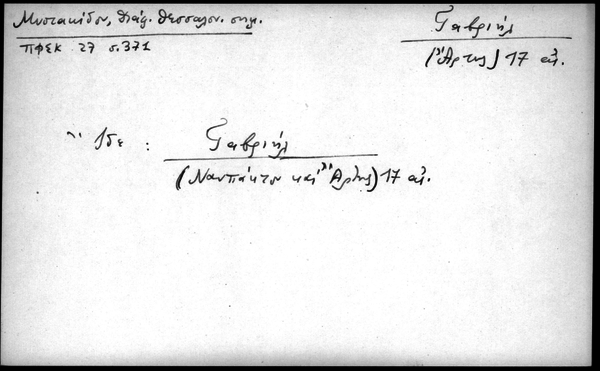 Μυστακίδου, διάφ. Θεσσαλον. σημ.
ΠΦΣΚ 27 σ.371
Γαβριήλ
(Ἄρτης) 17 αἰ.
Ἴδε :
Γαβριήλ
(Ναυπάκτου καὶ Ἄρτης) 17 αἰ.